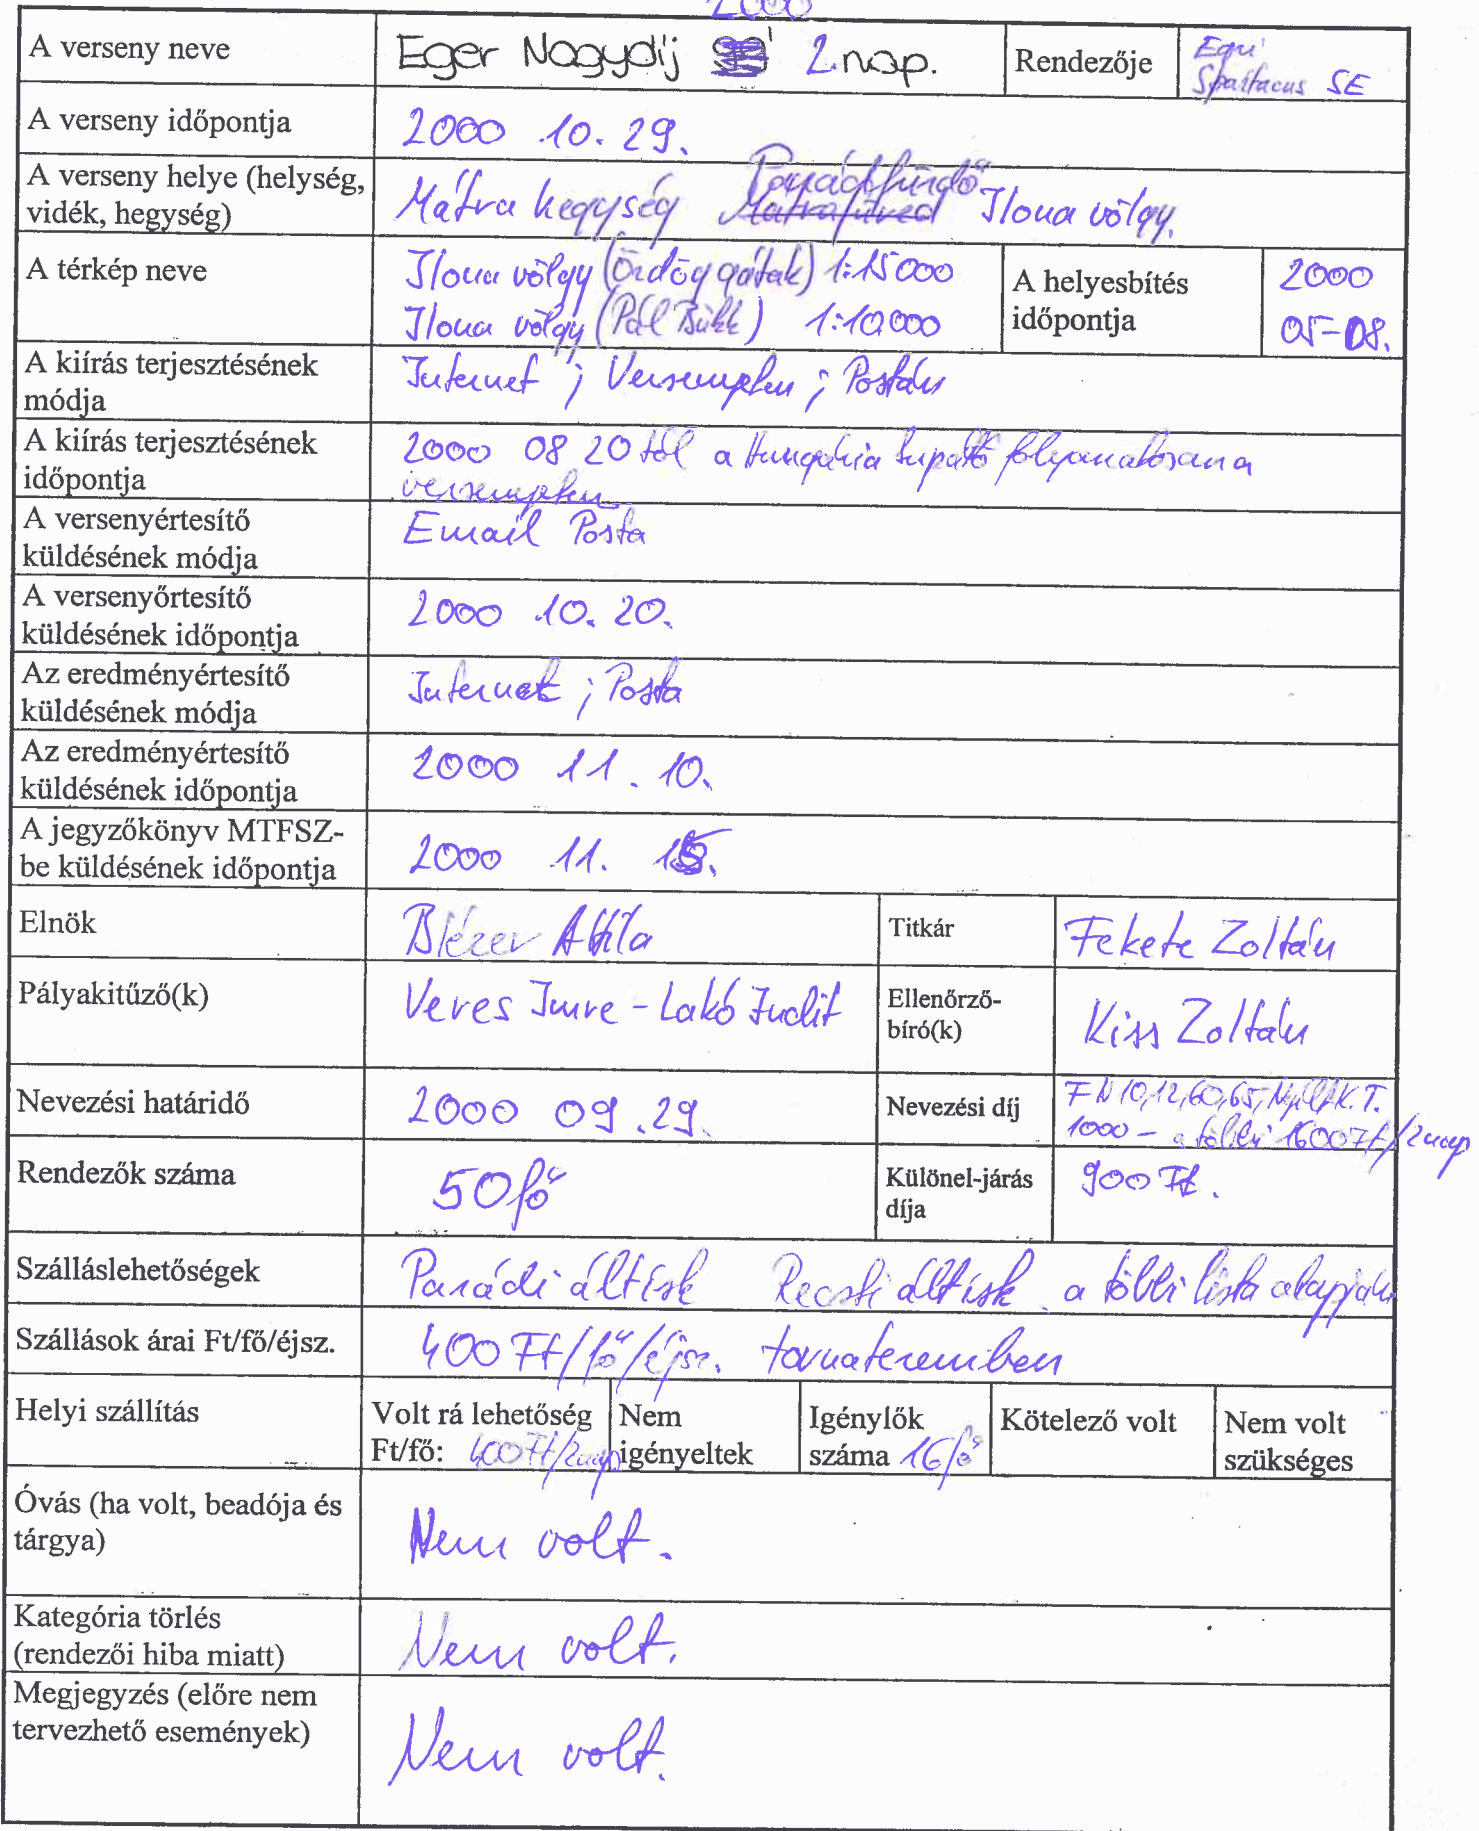 2000
A verseny neve Eger Nagydíj 2. nap. Rendezője Egri
Spartacus SE
A verseny időpontja 2000 10. 29.
A verseny helye (helység,
vidék, hegység) Mátra hegység Mátrafüred Parádfürdő Ilona völgy.
A térkép neve Ilona völgy (Ördög gátak) 1:15000
Ilona völgy (Pál Bükk) 1:10000
A helyesbítés
időpontja
2000
05-08.
A kiírás terjesztésének
módja
Internet ; Versenyeken ; Postán
A kiírás terjesztésének
időpontja
2000 08 20 tól a Hungária kupától folyamatosan a
versenyeken
A versenyértesítő
küldésének módja
Email Posta
A versenyőrtesítő
küldésének időpontja
2000 10. 20.
Az eredményértesítő
küldésének módja
Internet ; Posta
Az eredményértesítő
küldésének időpontja
2000 11. 10.
A jegyzőkönyv MTFSZ-
be küldésének időpontja
2000 11. 15.
Elnök Blézer Attila Titkár Fekete Zoltán
Pályakitűző(k) Veres Imre - Lakó Judit Ellenőrző-
bíró(k)
Kiss Zoltán
Nevezési határidő 2000 09. 29. Nevezési díj FN 10,12,60,65, Nyílt K.T.
1000 - a többi 1600 Ft/2nap
Rendezők száma 50 fő Különel-járás
díja
900 Ft.
Szálláslehetőségek Parádi ált isk Recski ált isk. a többi lista alapján
Szállások árai Ft/fő/éjsz. 400 Ft/fő/éjsz. tornateremben
Helyi szállítás Volt rá lehetőség
Ft/fő: 400 Ft/2nap
Nem
igényeltek
Igénylők
száma 16 fő
Kötelező volt Nem volt
szükséges
Óvás (ha volt, beadója és
tárgya)
Nem volt.
Kategória törlés
(rendezői hiba miatt)
Nem volt.
Megjegyzés (előre nem
tervezhető események)
Nem volt.